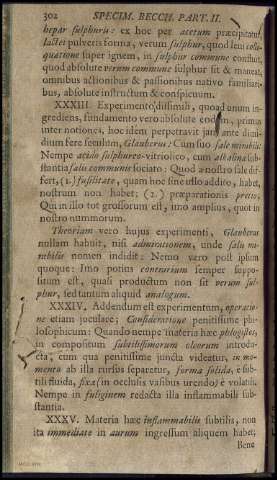 302 SPECIM. BECCH. PART. II.
hepar sulphuris: ex hoc per acetum præcipitatur
lactei pulveris forma, verum sulphur, quod leni colli-
quatione super ignem, in sulphur commune confluit,
quod absolute verum commune sulphur sit & maneat,
omnibus actionibus & passionibus nativo familiari-
bus, absolute instructum & conspicuum.
XXXIII. Experimento dissimili, quoad unum in-
grediens, fundamento vero absolute eodem, primus
inter notiones, hoc idem perpetravit jam ante dimi-
dium fere seculum, Glauberus: Cum suo sale mirabili:
Nempe acido sulphureo-vitriolico, cum alcalina sub-
stantia salis communis sociato: Quod a nostro sale dif-
fert, (1.) fusilitate, quam hoc sine ullo addito, habet,
nostrum non habet; (2.) præparationis pretio,
Qui in illo tot grossorum est, imo amplius, quot in
nostro nummorum.
Theoriam vero hujus experimenti, Glauberus
nullam habuit, nisi admirationem, unde salis mi-
rabilis nomen indidit: Nemo vero post ipsum
quoque: Imo potius contrarium semper suppo-
situm est, quasi productum non sit verum sul-
phur, sed tantum aliquid analogum.
XXXIV. Addendum est experimentum, operatio-
ne etiam joculare; Consideratione penitissime phi-
losophicum: Quando nempe materia hæc phlogistos,
in compositum subtilissimorum oleorum introdu-
cta, cum qua penitissime juncta videatur, in mo-
mento ab illa rursus separetur, forma solida, e sub-
tili fluida, fixa (in occlusis vasibus urendo) e volatili.
Nempe in fuliginem redacta illa inflammabili sub-
stantia.
XXXV. Materia hæc inflammabilis subtilis, non
ita immediate in aurum ingressum aliquem habet;
Bene